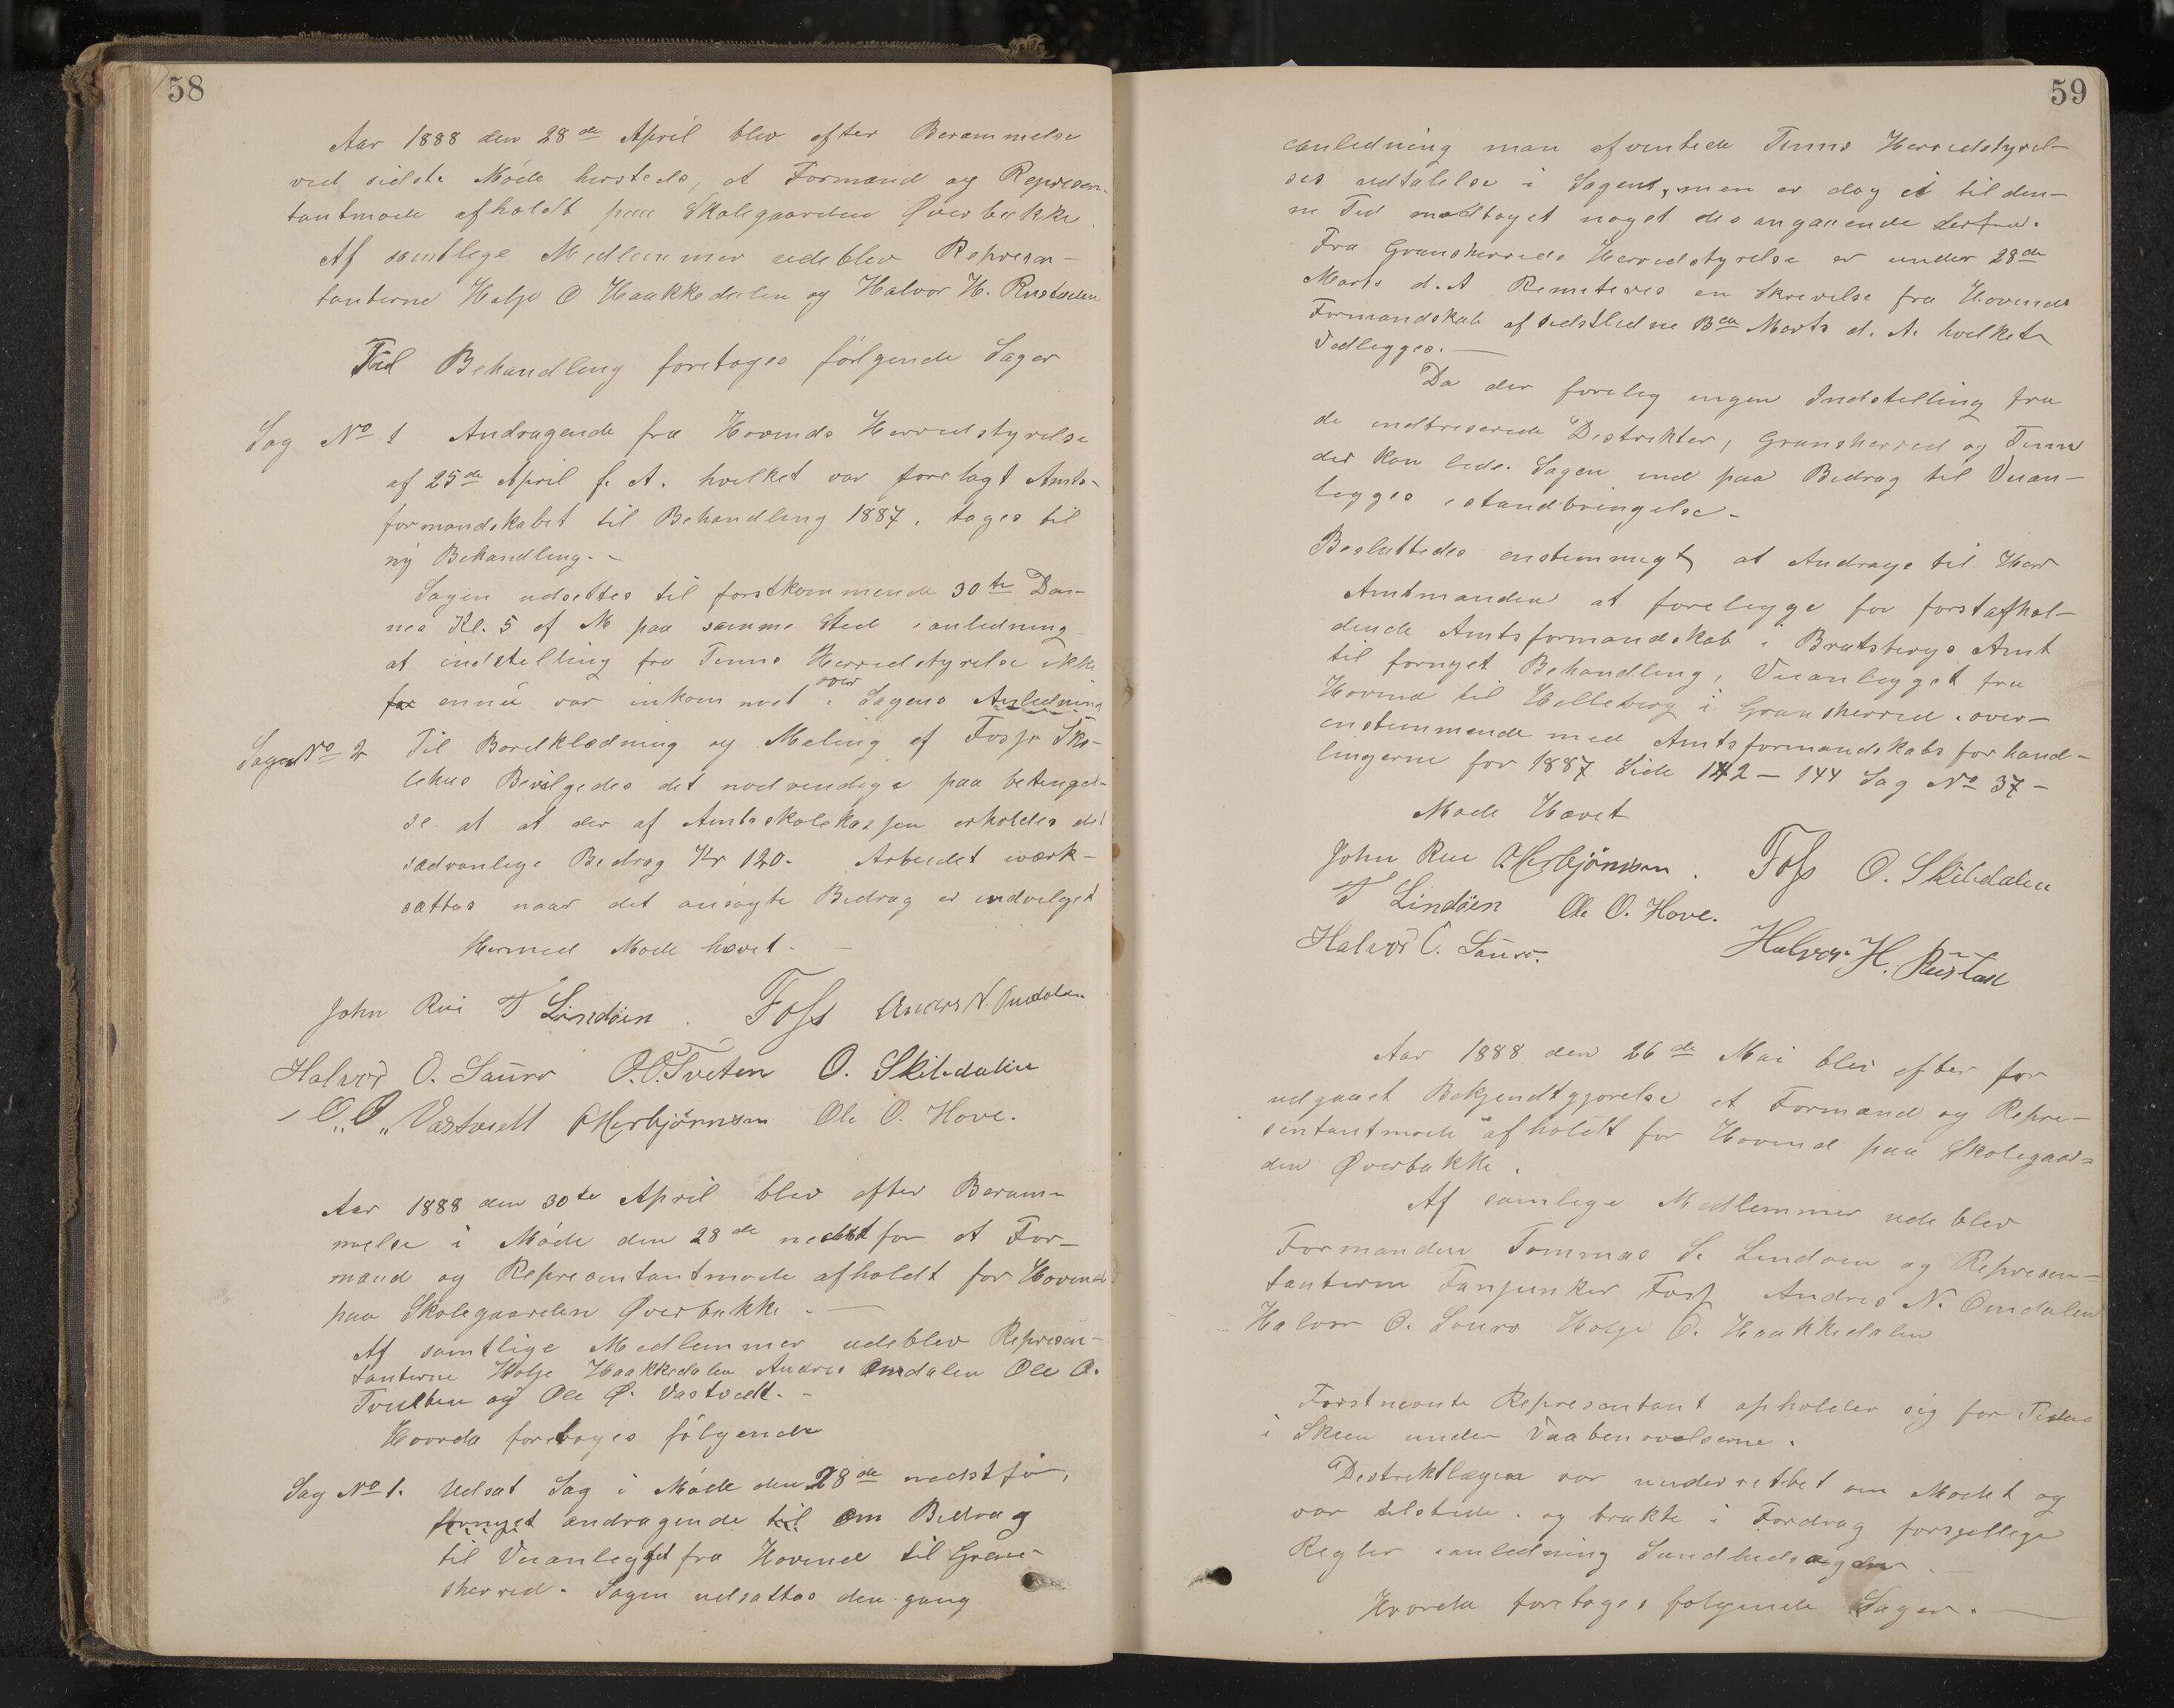 58
Aar 1888 den 28de April blev efter Berammelse
ved sidste Möde hersteds, et Formænd og Represen-
tantmøde afholdt paa Skolegaarden Øverbække.
Af samtlige Medlemmer udeblev Represen-
tanterne Helje O Haakkedalen og Halvor H. Rustaden
Til Behandling foretoges følgende Sager
Sag No 1 Andragende fra Hovinds Herredstyrelse
af 25de April f. A. hvilket var forelagt Amts-
formandskabet til Behandling 1887, tages til
ny Behandling. -
Sagen udsettes til førstkommende 30te Den-
nes Kl. 5 ef M paa samme Sted i anledning
at indstelling fra Tinns Herredstyrelse ikke
for ennu var inkommet over i Sagens Anledning
Sagen No 2 Til Bordklædning og Maling af Fosso Sko-
lehus Bevilgedes det nødvendige paa betingel-
se at at der af Amtsskolekassen erholdes det
sædvanlige Bedrag Kr 120. Arbeidet værk-
sættes naar det ansøgte Bedrag er indvilget
Hermed Mode hævet. -
John Rui T Lindöen . Foss Anders N. Omdalen
Halvor O. Sauro O.O. Tveten O. Skibedalen
O. Ø. Vastveit O Herbjörnsen Ole O. Hove.
Aar 1888 den 30te April blev efter Beram-
melse i Möde den 28de nestfor et For-
mænd og Representantmøde afholdt for Hovind
paa Skolegaarden Øverbække. -
Af samtlige Medlemmer udeblev Represen-
tanterne Helje Haakkedalen Andres Omdalen Ole O.
Tveiten og Ole Ø. Vastveit. -
Hvorda foretoges følgende
Sag No 1. Udsat Sag i Møde den 28de nestfor,
fornyet andragende til om Bedrag
til Veianlegget fra Hovind til Gran-
sherred. Sagen udsattes den gang
59
ianledning man afventede Tinns Herredstyrel-
ses udtalelse i Sagens, men er dog ei til den-
ne Tid modtaget noget desangaaende derfra.
Fra Gransherreds Herredstyrelse er under 28de
Marts d. A Remiteres en skrivelse fra Hovinds
Formandskab af sidstledne 13de Marts d. A. hvilket
Vedlegges. -
Da der forelig ingen Indstelling fra
de indtreserede Destrikter, Gransherred og Tinn
der kan lede Sagen ind paa Bedrag til Veian-
legges istandbringelse -
Besluttedes enstemmigt, at Andrage til Herr
Amtmanden at forelegge for førstafhol-
dende Amtsformandskab i Bratsbergs Amt
til fornyet Behandling, Veianlegget fra
Hovind til Helleberg i Gransherred, over-
enstemmende med Amtsformandskabs forhand-
lingerne for 1887 Side 142 - 144 Sag No 37 -
Mode Hævet
John Rui O. Herbjörnsen . Foss O. Skibedalen
T Lindöen Ole O. Hove.
Halvor O. Sauro. Halvor H. Rustad
Aar 1888 den 26de Mai blev efter for
udgaaet Bekjendtgjorelse et Formænd og Repre-
sentantmøde afholdt for Hovind paa Skolegaar-
den Øverbække.
Af samlige Medlemmer udeblev
Formanden Tommas S. Lindoen og Represen-
tanterne Fanjunker Foss Andres N. Omdalen
Halvor O. Sauro Helje O. Haakkedalen
Forstnevnte Representant opholder sig for Tiden
i Skien under Vaabenøvelserne.
Destriktlægen var underrettet om Modet og
var tilstede, og brakte i Fordrag forsjellige
Regler ianledning Sundhedsagen. -
Hvorda foretoges følgende Sager. -